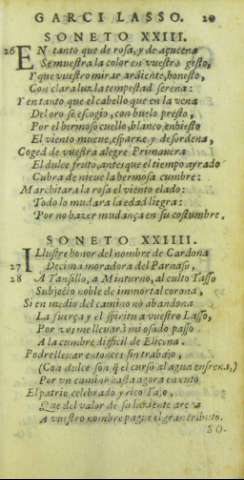 GARCI LASSO. 20
SONETO XXIII.
26 EN tanto que de rosa, y de açucena
Se muestra la color en vuestro gesto,
Y que vuestro mirar ardiente, honesto,
Con clara luz la tempestad serena:
Y en tanto que el cabello que en la vena
Del oro se escogio, con buelo presto,
Por el hermoso cuello, blanco, enhiesto
El viento mueue, esparze y desordena,
Coged de vuestra alegre Primauera
El dulce fruto, antes que el tiempo ayrado
Cubra de nieue la hermosa cumbre:
Marchitara la rosa el viento elado:
Todo lo mudara la edad ligera:
Por no hazer mudança en su costumbre.
SONETO XXIIII.
ILlustre honor del nombre de Cardona
27 Decima moradora del Parnaso,
28 A Tansillo, a Minturno, al culto Tasso
Subjecto noble de immortal corona,
Si en medio del camino no abandona
La fuerça y el spiritu a vuestro Lasso,
Por vos me lleuar à mi osado passo
A la cumbre dificil de Elicona.
Podre lleuar entonces sin trabajo,
(Con dulce son q̃ el curso al agua enfrena,)
Por un camino hasta agora
El patrio celebrado y rico Tajo,
Que del valor de su luziente arena
A vuestro nombre pague el gran tributo.
SO.